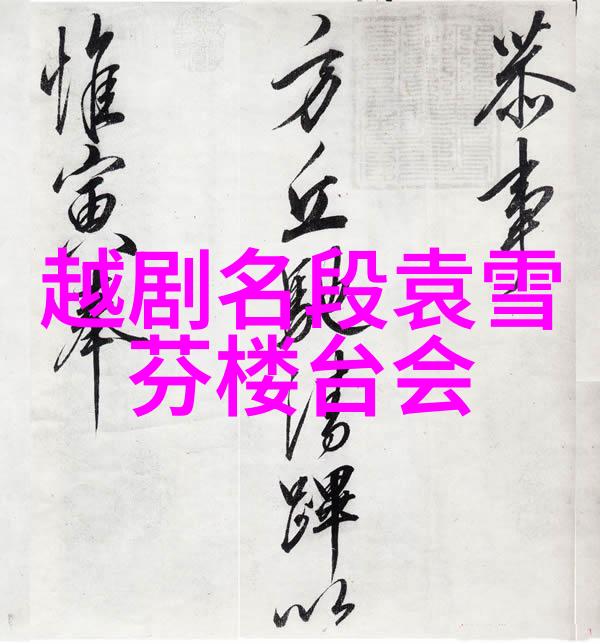 越剧名段袁雪
芬楼台会
恭事
方丘清蹕以
惟寅奉